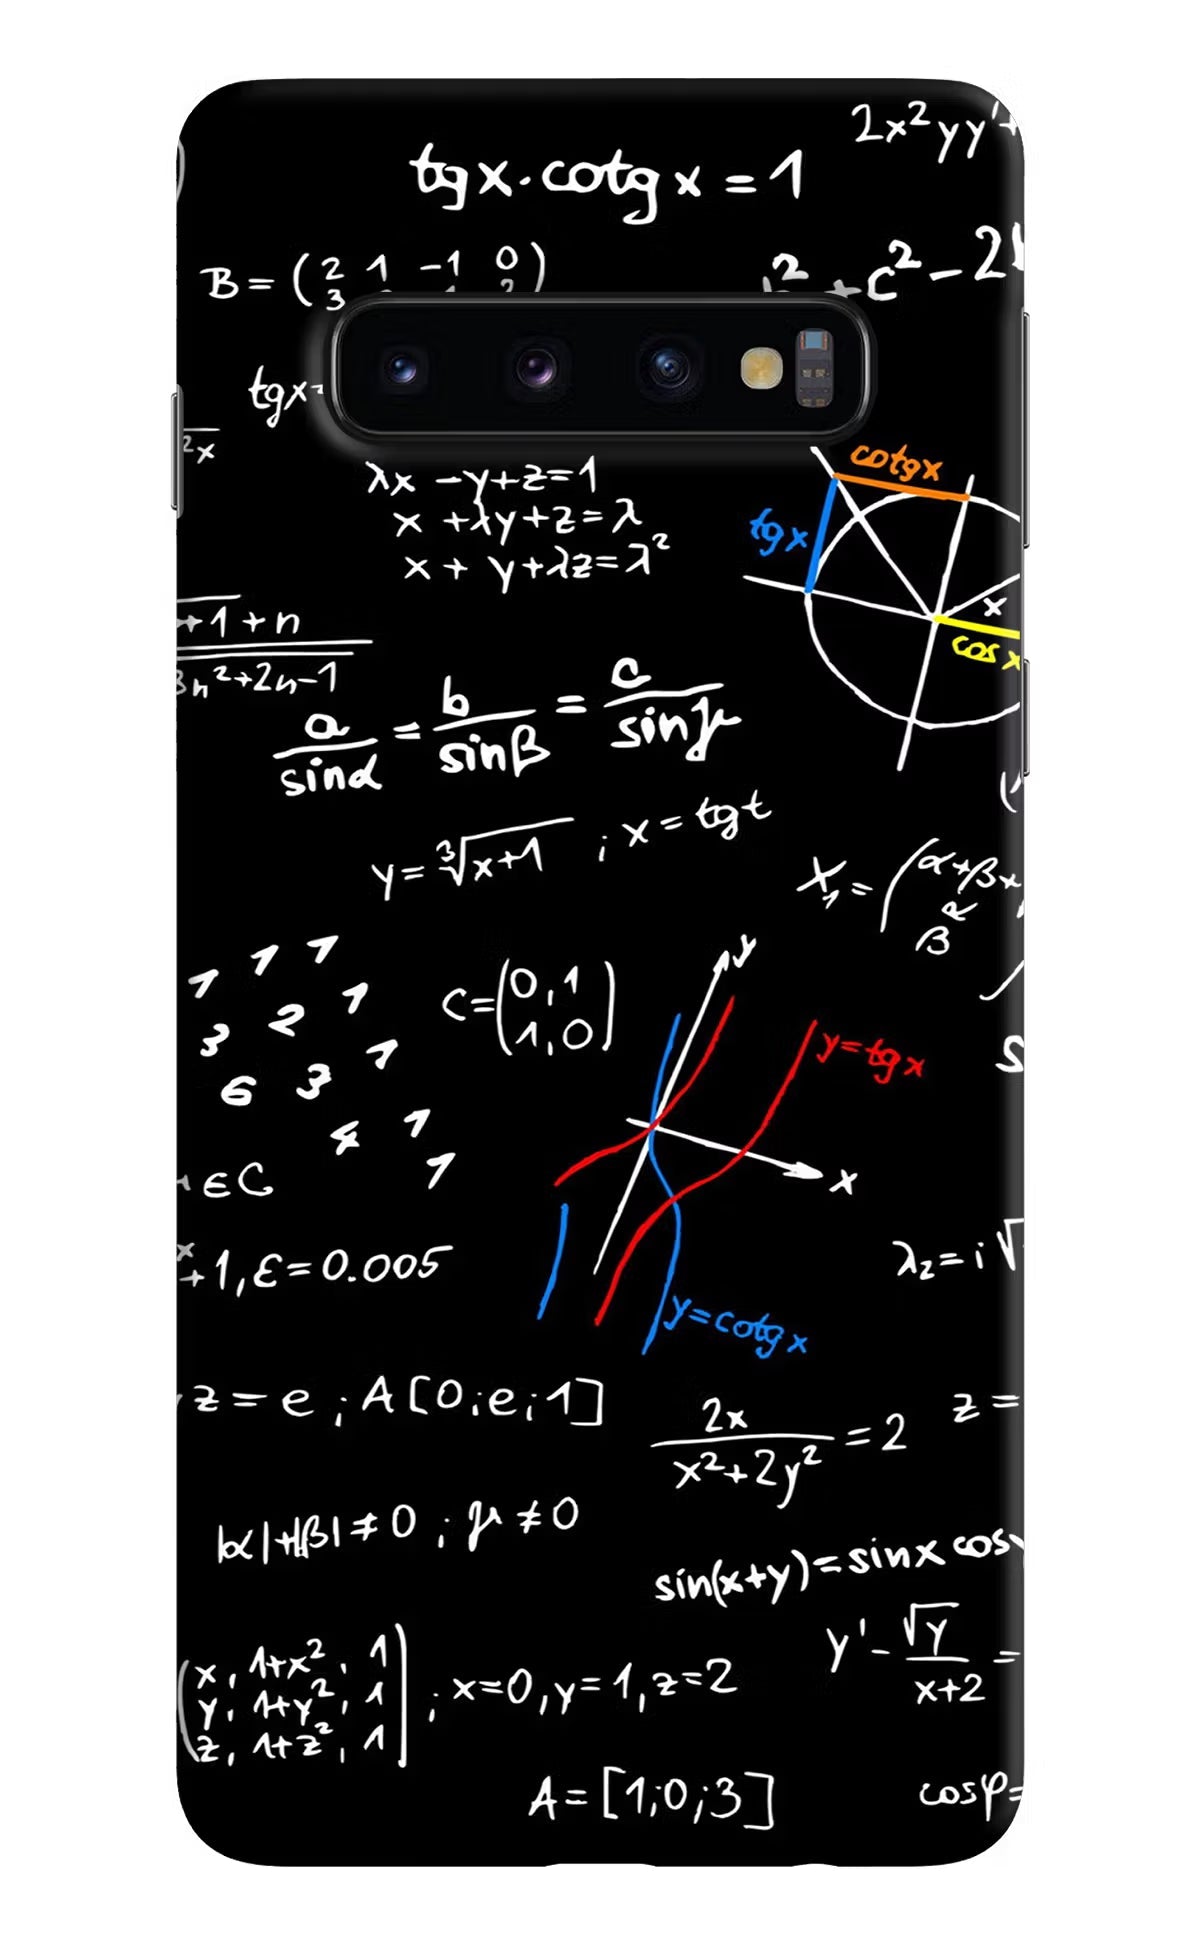 2x²yy'+
tgx·cotgx=1
B=(2 1 -1 0
3
+c²-2
tgx=
2x
cotgx
λx-y+z=1
x+λy+z=λ
x+y+λz=λ²
tgx
x
cosx
+1+n
3n²+2n-1
a/sinα=b/sinβ=c/sinγ
y=∛x+1 ; x=tgt
X₁=(α+β+
β
1 1 1
3 2 1
6 3 1
4 1
1
C=(0,1
1,0)
y
y=tgx
x
∈C
+1,ε=0.005
λ₂=i√
y=cotgx
z=e;A[0;e;1]
2x/x²+2y²=2
z=
|α|+|β|≠0 ; μ≠0
sin(x+y)=sinx cos
y'-√y/x+2=
(x, 1+x², 1
y, 1+y², 1
z, 1+z², 1) ; x=0,y=1,z=2
A=[1;0;3]
cosφ=